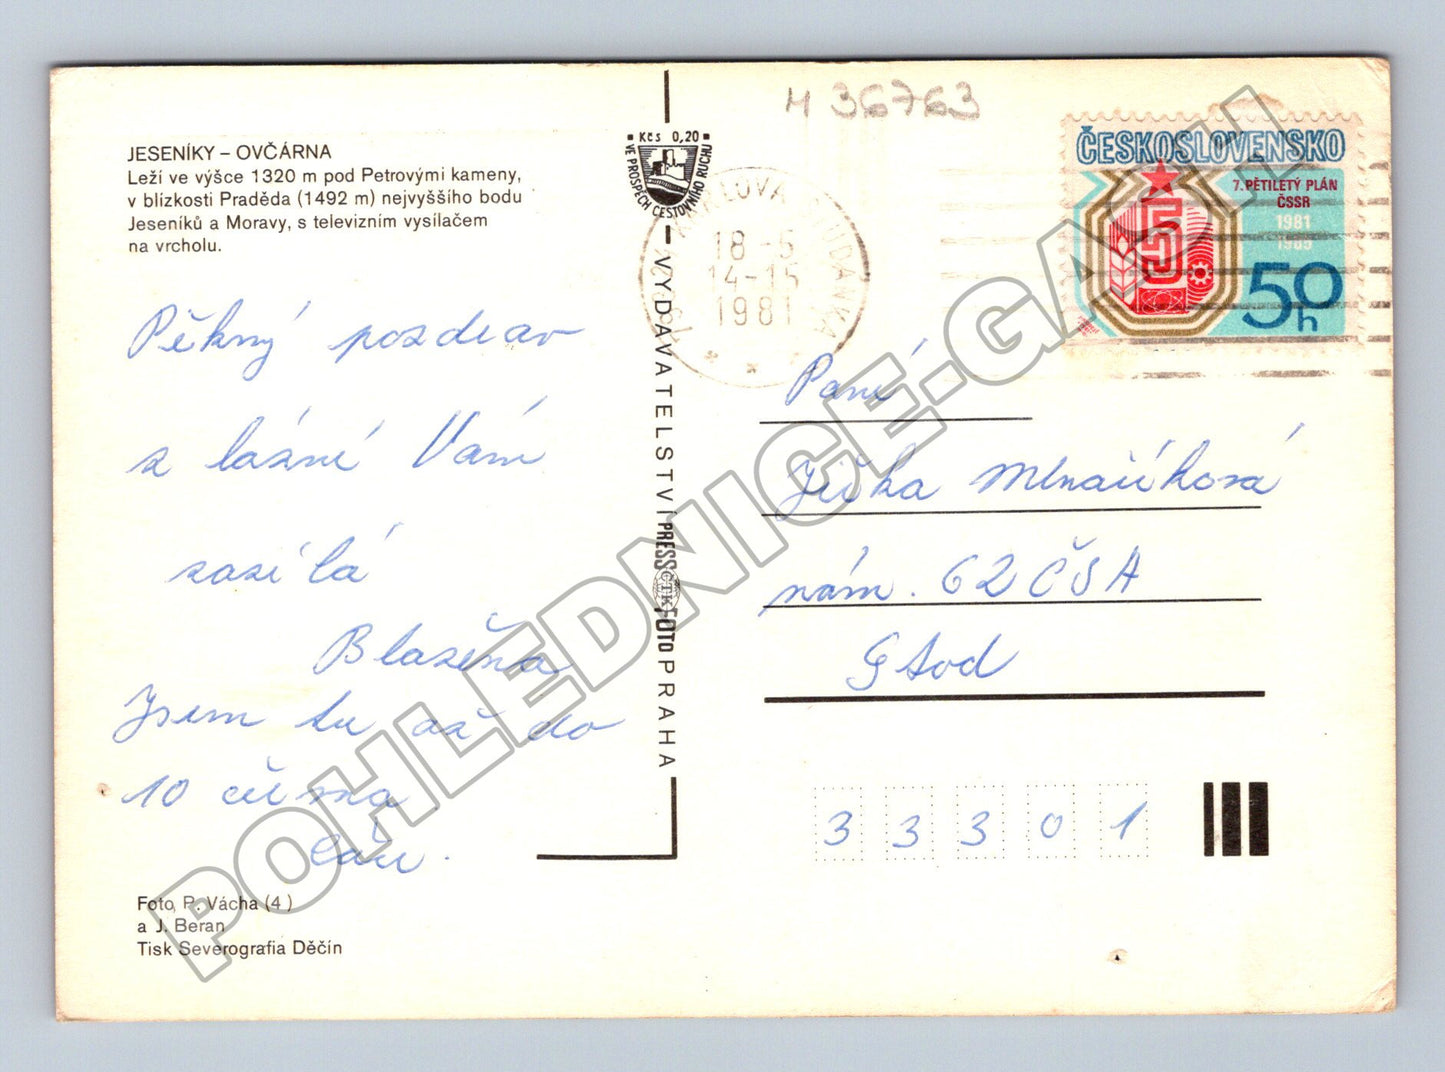 JESENÍKY – OVČÁRNA
Leží ve výšce 1320 m pod Petrovými kameny,
v blízkosti Praděda (1492 m) nejvyššího bodu
Jeseníků a Moravy, s televizním vysílačem
na vrcholu.
Pěkný pozdrav
z lázní Vám
zasílá
Blažena
Jsem tu až do
10 června
Foto, P. Vácha (4 )
a J. Beran
Tisk Severografia Děčín
Kčs 0,20
VE PROSPĚCH CESTOVNÍHO RUCHU
VYDAVATELSTVÍ PRESSFOTO PRAHA
ČTK
M 36763
KARLOVA STUDÁNKA
18.-5
14-15
1981
ČESKOSLOVENSKO
7. PĚTILETÝ PLÁN
ČSSR
1981
1985
5
50
h
Paní
Jiřka Mlnaříková
nám. 62 ČSA
Stod
3 3 3 0 1
POHLEDNICE-GASUL